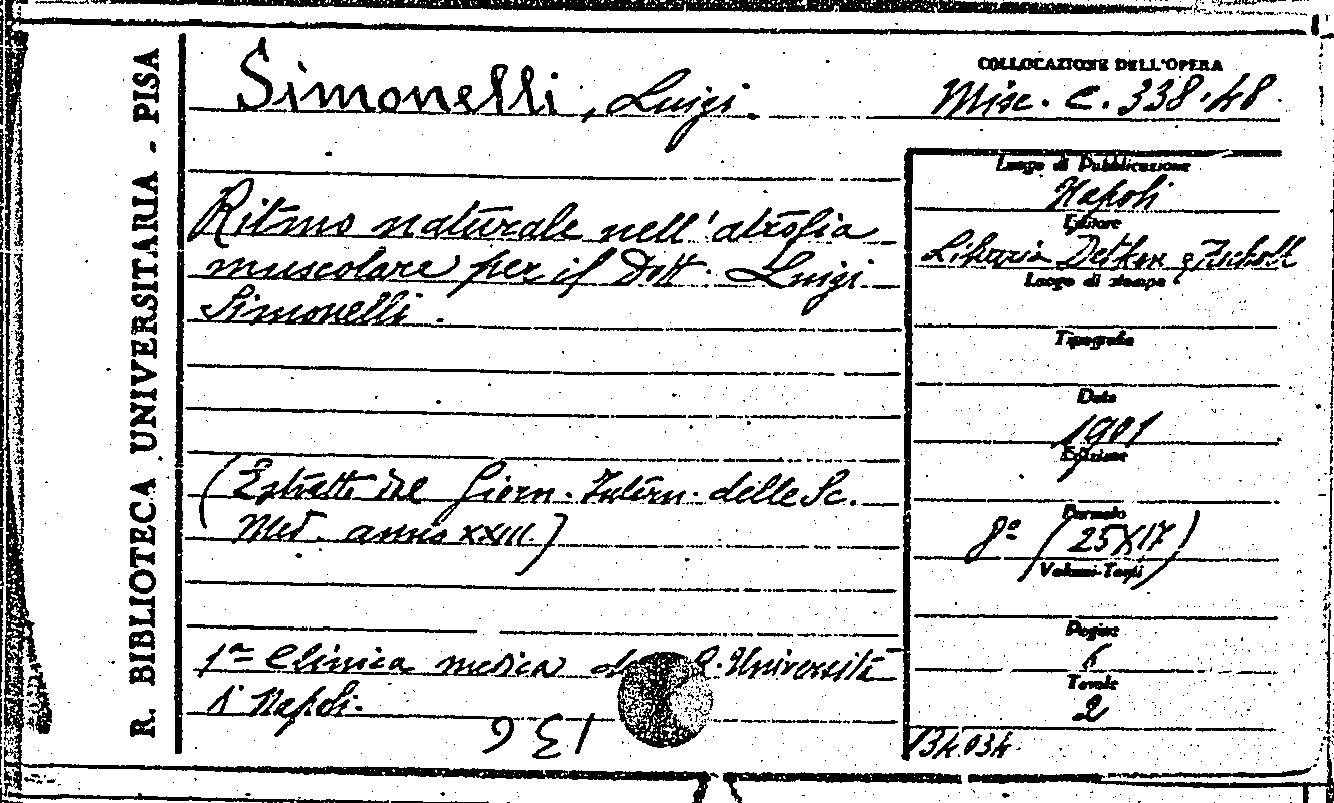 R. BIBLIOTECA UNIVERSITARIA - PISA
Simonelli, Luigi.
COLLOCAZIONE DELL'OPERA
Misc. C. 338.48
Ritmo naturale nell'atrofia
muscolare per il Dott. Luigi
Simonelli.
(Estratto dal Giorn. Intern. delle Sc.
Med. anno XXIII.)
1ª Clinica medica R. Università
di Napoli.
136
Luogo di Pubblicazione
Napoli
Editore
Libreria Detken e
Luogo di stampa
Tipografia
Data
1901
Edizione
Formato
8º (25X17)
Volumi-Tomi
Pagine
6
Tavole
2
134034